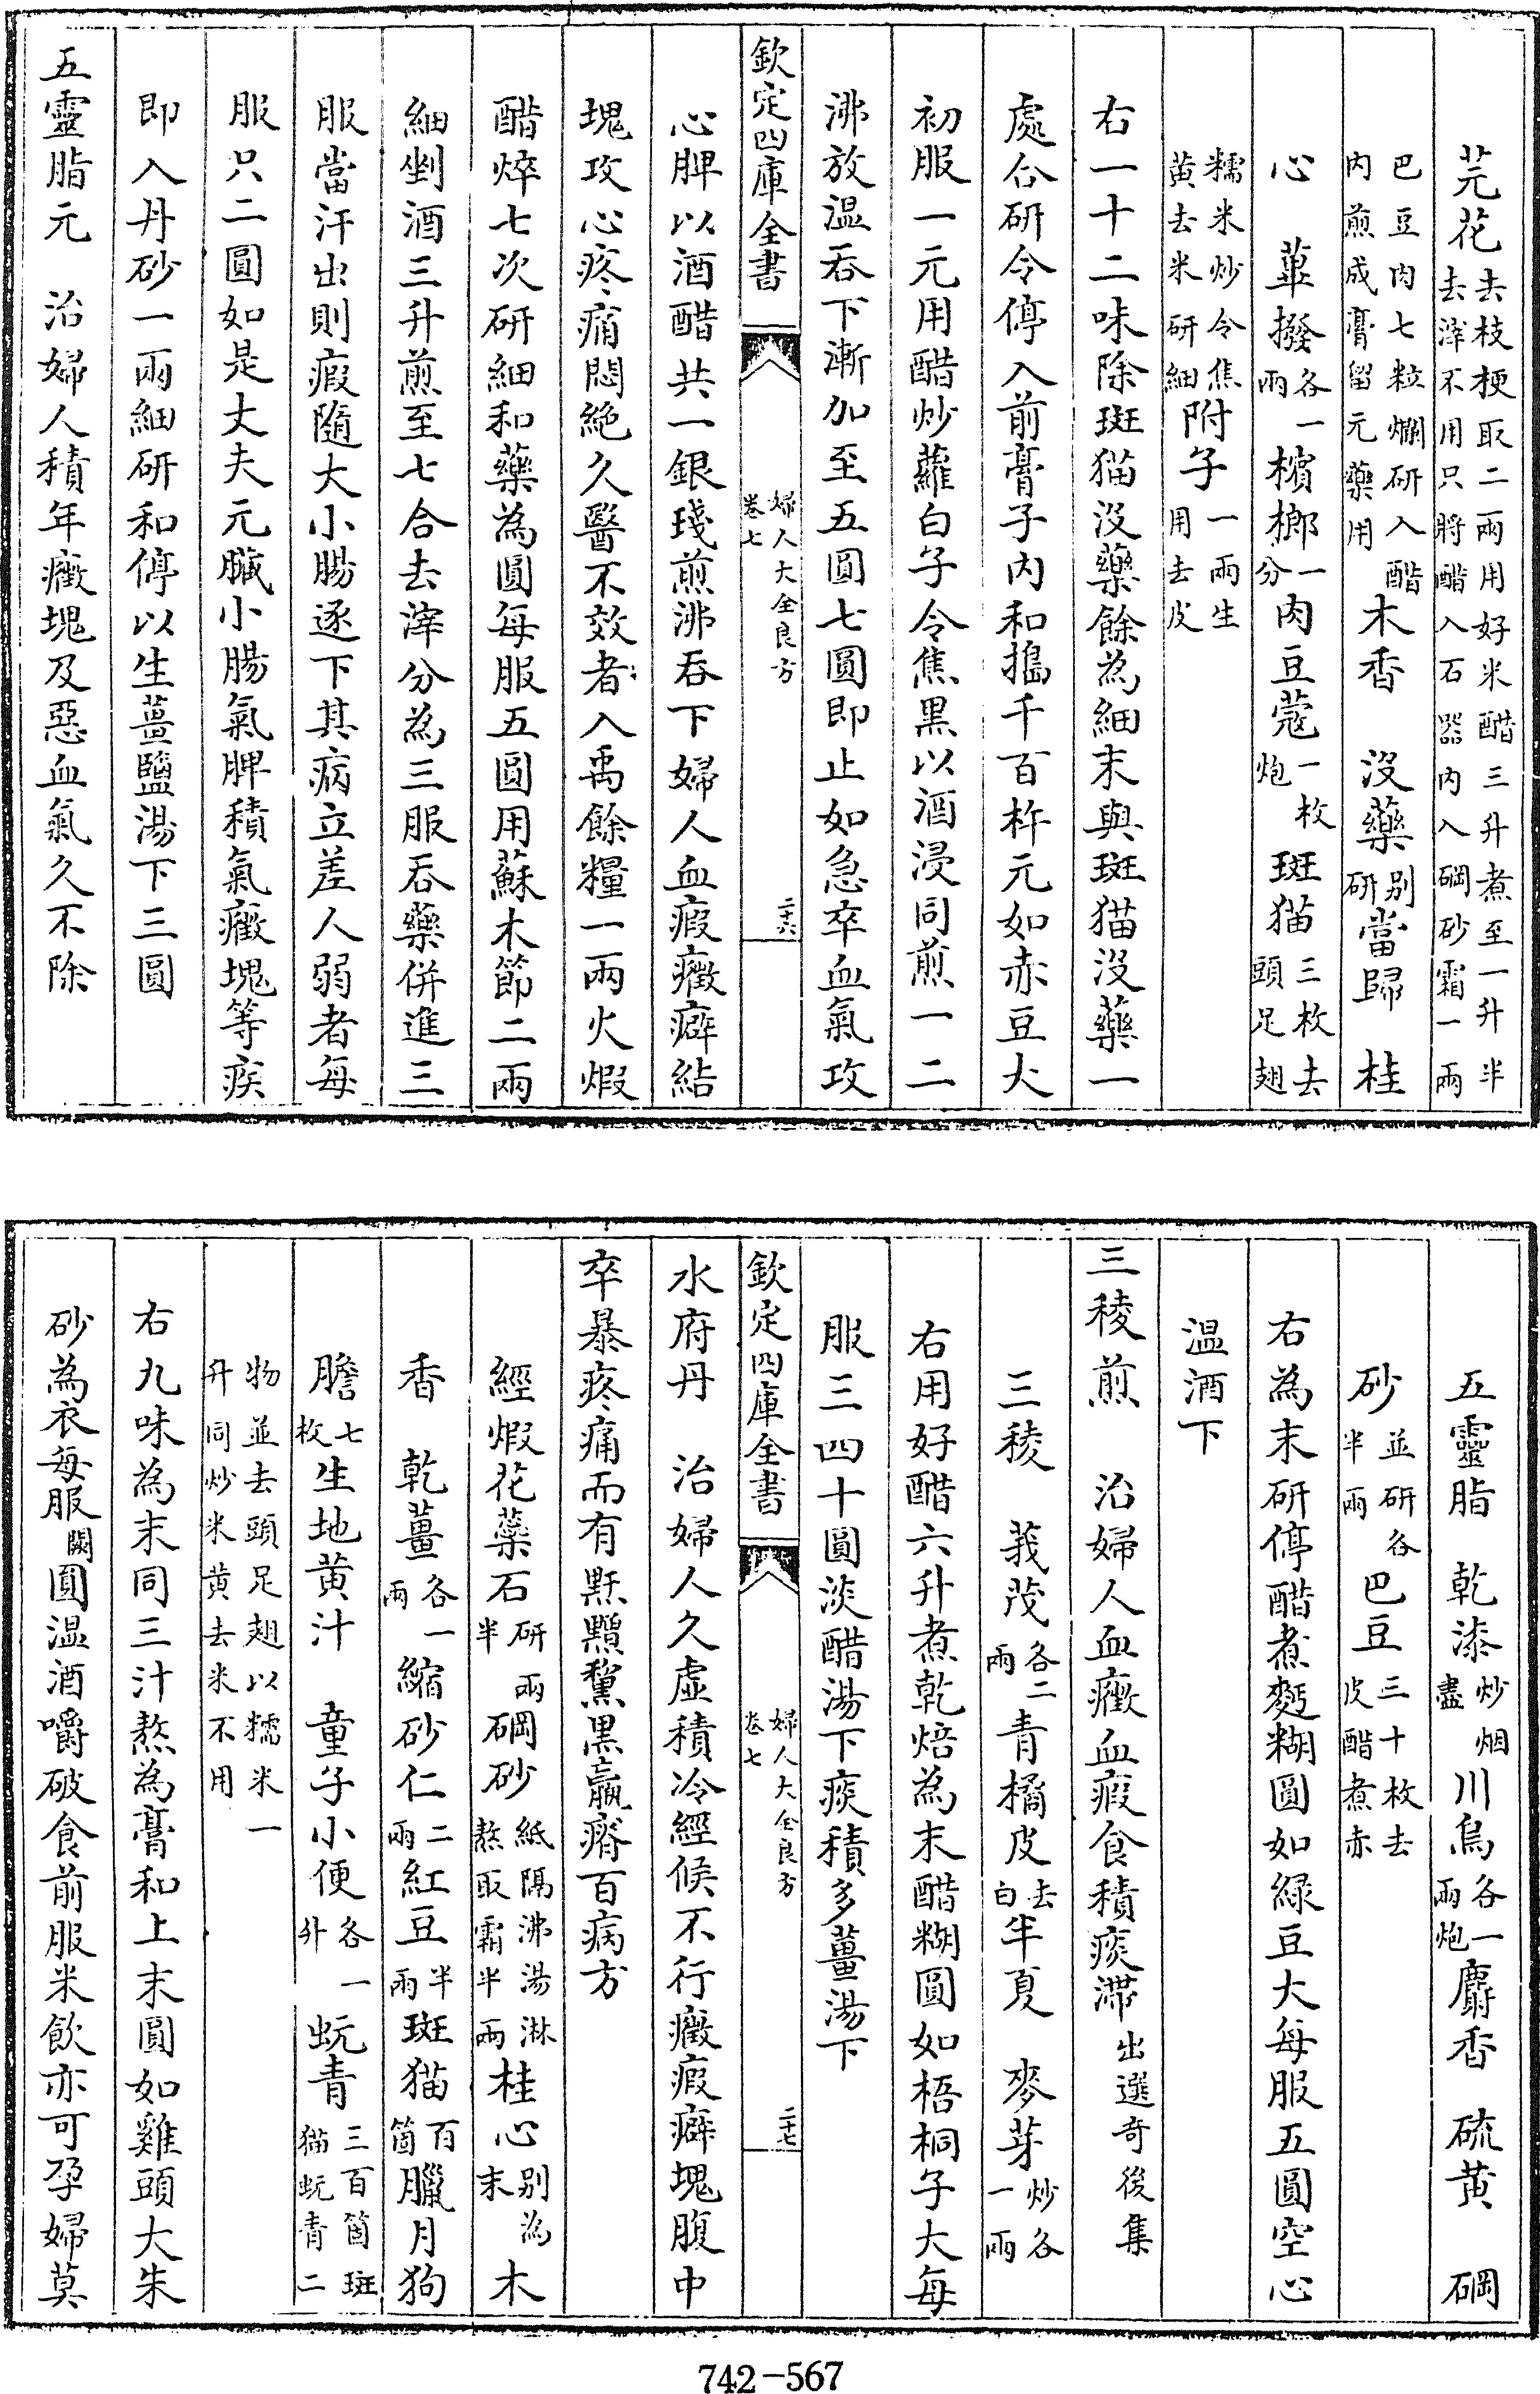 芫花去枝梗取二兩用好米醋三升煮至一升半去滓不用只將醋入石器內入硇砂霜一兩
巴豆肉七粒爛研入醋內煎成膏留元藥用木香　沒藥别研當歸　桂
心　蓽撥各一兩檳榔一分肉豆蔻一枚炮斑猫三枚去頭足翅
糯米炒令焦黄去米研細附子一兩生用去皮
右一十二味除斑猫沒藥餘為細末與斑猫沒藥一
處合研令停入前膏子內和搗千百杵元如赤豆大
初服一元用醋炒蘿白子令焦黑以酒浸同煎一二
沸放温吞下漸加至五圓七圓即止如急卒血氣攻
欽定四庫全書　婦人大全良方卷七　二十六
心脾以酒醋共一銀琖煎沸吞下婦人血瘕癥癖結
塊攻心疼痛悶絶久醫不效者入禹餘糧一兩火煅
醋焠七次研細和藥為圓每服五圓用蘇木節二兩
細剉酒三升煎至七合去滓分為三服吞藥併進三
服當汗出則瘕隨大小腸逐下其病立差人弱者每
服只二圓如是丈夫元臟小腸氣脾積氣癥塊等疾
即入丹砂一兩細研和停以生薑鹽湯下三圓
五靈脂元　治婦人積年癥塊及惡血氣久不除
五靈脂　乾漆炒烟盡川烏各一兩炮麝香　硫黄　硇
砂並研各半兩巴豆三十枚去皮醋煮赤
右為末研停醋煮麪糊圓如緑豆大每服五圓空心
温酒下
三稜煎　治婦人血癥血瘕食積痰滯出選奇後集
三稜　莪茂各二兩青橘皮去白半夏　麥芽炒各一兩
右用好醋六升煮乾焙為末醋糊圓如梧桐子大每
服三四十圓淡醋湯下痰積多薑湯下
欽定四庫全書　婦人大全良方卷七　二十七
水府丹　治婦人久虛積冷經候不行癥瘕癖塊腹中
卒暴疼痛而有䵟䵳黧黒羸瘠百病方
經煅花蘂石研兩半硇砂紙隔沸湯淋熬取霜半兩桂心别為末木
香　乾薑各一兩縮砂仁二兩紅豆半兩斑猫百箇臘月狗
膽七枚生地黄汁　童子小便各一升蚖青三百箇斑猫蚖青二
物並去頭足翅以糯米一升同炒米黄去米不用
右九味為末同三汁熬為膏和上末圓如雞頭大朱
砂為衣每服闕圓温酒嚼破食前服米飲亦可孕婦莫
742-567